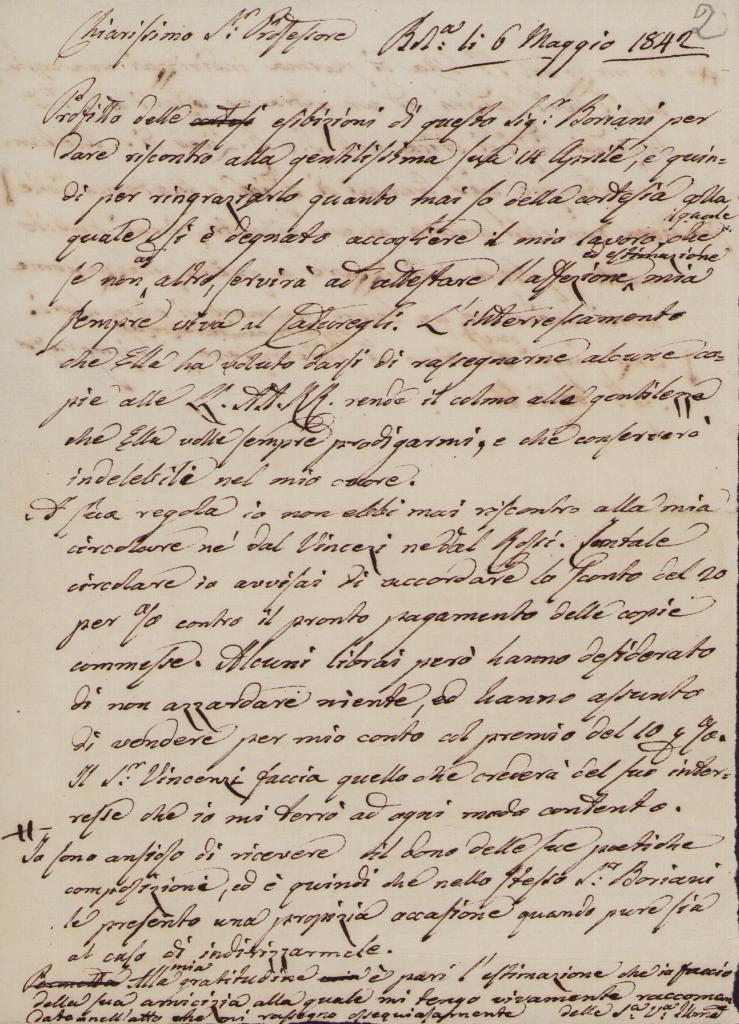 2
Chiarissimo S.r Professore Bol.a li 6 Maggio 1842
Profitto delle esibizioni di questo Sig.r Boriani per
dare riscontro alla gentilissima sua 14 Aprile, e quin=
di per ringraziarlo quanto mai so della cortesia colla
quale si è degnato accogliere il mio lavoro, il quale
se non ad altro, servirà ad attestare l'affezione ed estimazione mia
sempre viva al Caturegli. L'interressamento
che Ella ha voluto darsi di rassegnarne alcune co=
pie alle L. AA. RR. rende il colmo alle gentilezze
che Ella volle sempre prodigarmi, e che conserverò
indelebili nel mio cuore.
A sua regola io non ebbi mai riscontro alla mia
circolare nè dal Vincenzi ne dal Rossi. Con tale
circolare io avvisai di accordare lo sconto del 20
per % contro il pronto pagamento delle copie
commesse. Alcuni librai però hanno desiderato
di non azzardare niente, ed hanno assunto
di vendere per mio conto col premio del 10 p %.
Il S.r Vincenzi faccia quello che crederà del suo inter=
resse che io mi terrò ad ogni modo contento.
Io sono ansioso di ricevere il dono delle sue poetiche
composizioni, ed è quindi che nello stesso S.r Boriani
le presento una propizia occasione quando pure sia
al caso di indirizzarmele.
Alla mia gratitudine è pari l'estimazione che io faccio
della sua amicizia alla quale mi tengo vivamente raccoman
dato nell'atto che mi rassegno ossequiosamente della S.a V.a